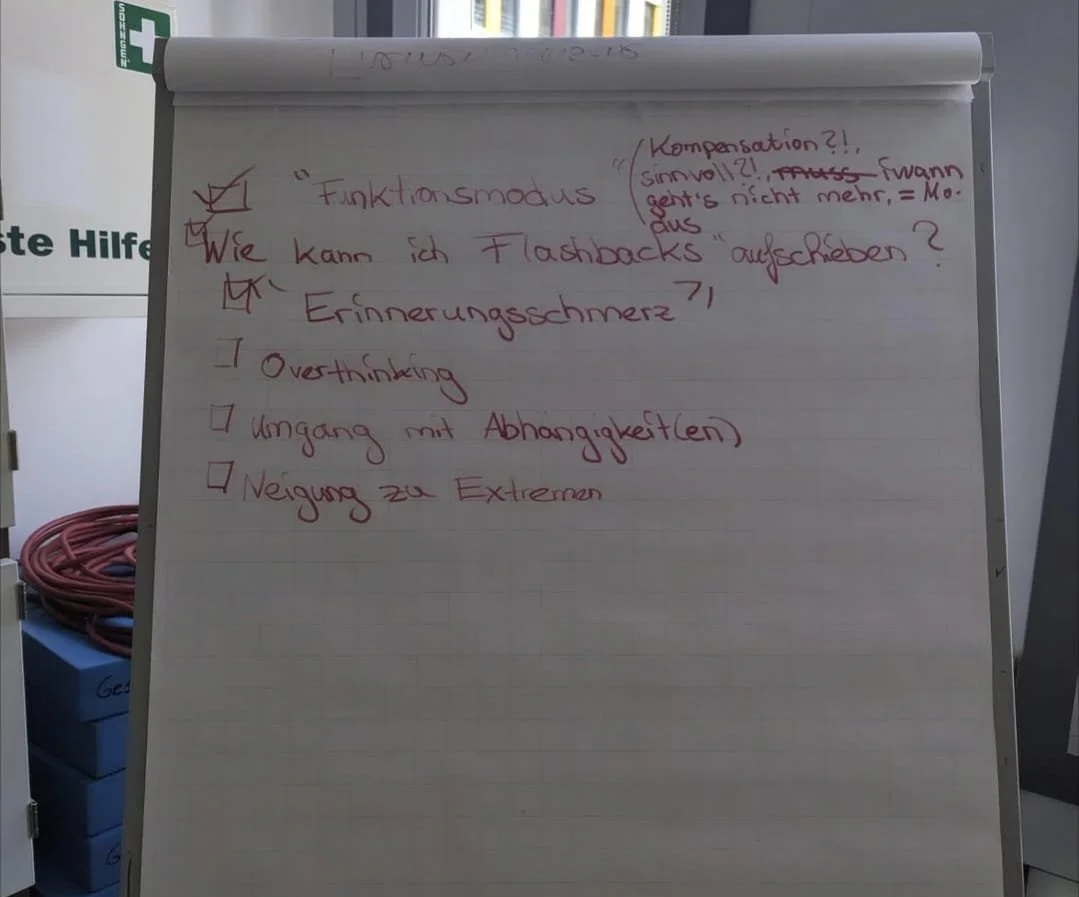 SÖHNGEN
"Funktionsmodus" (Kompensation?!,
sinnvoll?!, muss Fwann
geht's nicht mehr, = Mo-
dus
Wie kann ich Flashbacks "aufschieben?
"Erinnerungsschmerz",
Overthinking
Umgang mit Abhängigkeit(en)
Neigung zu Extremen
ste Hilfe
Ges
G